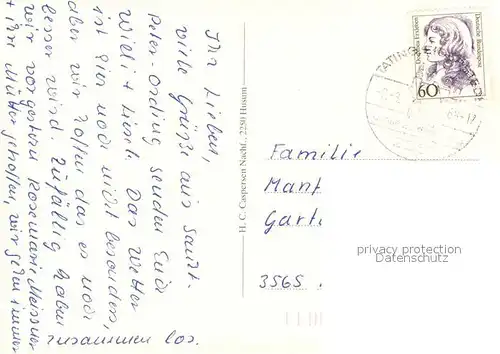 Ihr Lieben,
viele Grüße aus Sankt.
Peter-Ording senden Euch
Willi + Liesel. Das Wetter
ist hier noch nicht besonders,
aber wir hoffen das es noch
besser wird. Zufällig haben
wir vorgestern Rosemarie Meissner
+ ihre Mutter getroffen, wir gehen immer
zusammen los.
H. C. Caspersen Nachf., 2250 Husum
Deutsche Bundespost
60
TATING
Familie
Man
Gart
3565
privacy protection
Datenschutz